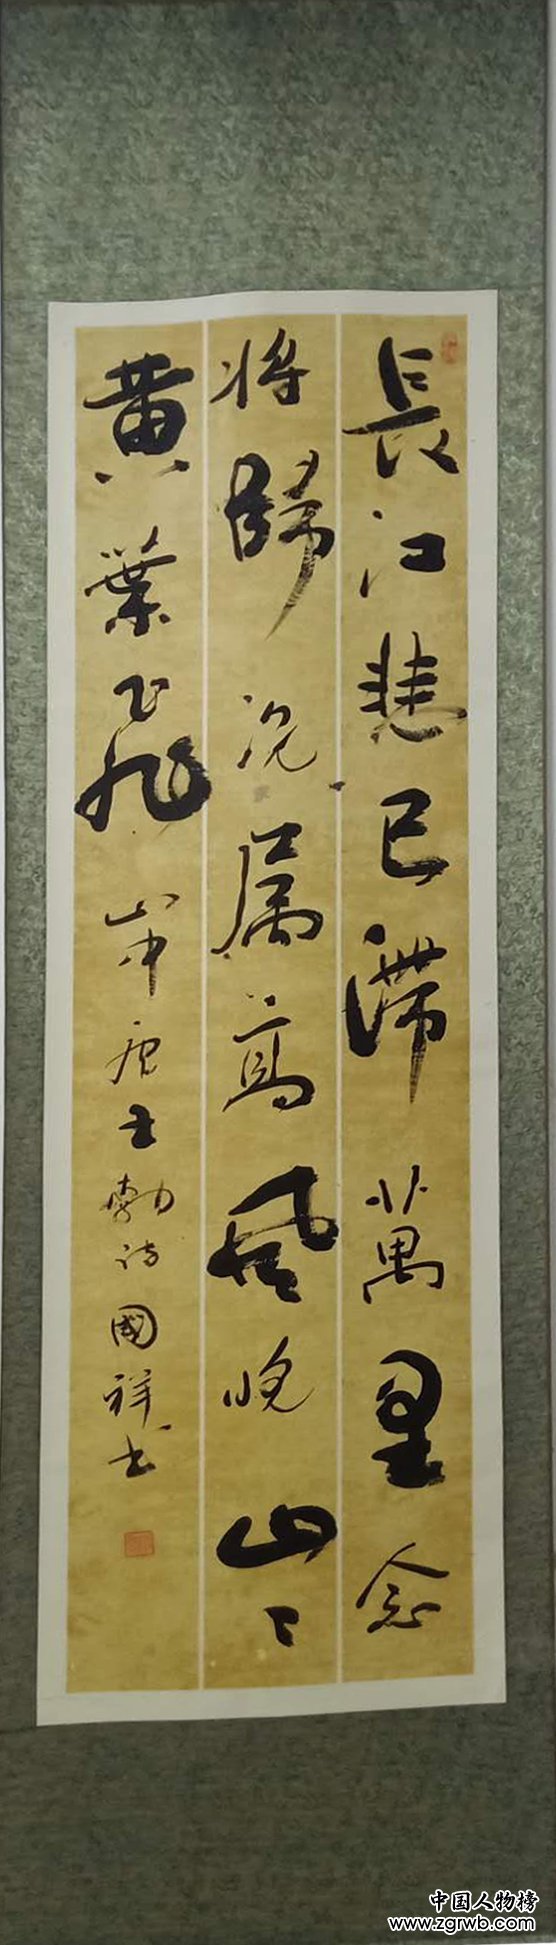 長江悲已滯萬里念
將歸況属高風晚山〻
黄葉飛 山中唐王勃诗國祥书
中国人物榜
www.zgrwb.com